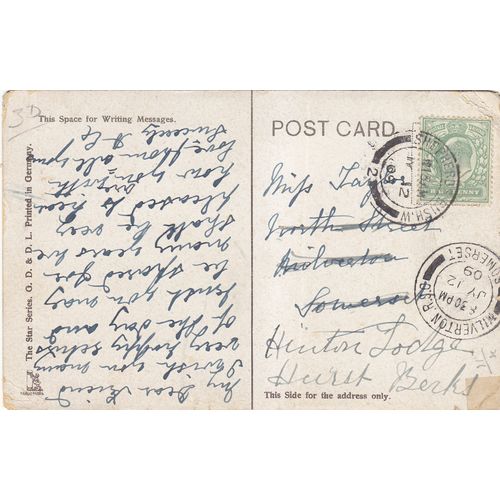 3D
This Space for Writing Messages.
My Dear Friend
I wish you many
very happy returns
of the day and
trust you may
be spared for
many years we
shall be very
pleased to hear
how you
love from all
Sincerely
The Star Series. G. D. & D. L. Printed in Germany.
POST CARD.
Miss
North Street
Milverton
Somerset
Hinton Lodge
Hurst Berks
This Side for the address only.
JY 12
09
MILVERTON R.S.O. SOMERSET
6.30 AM
JY 12
09